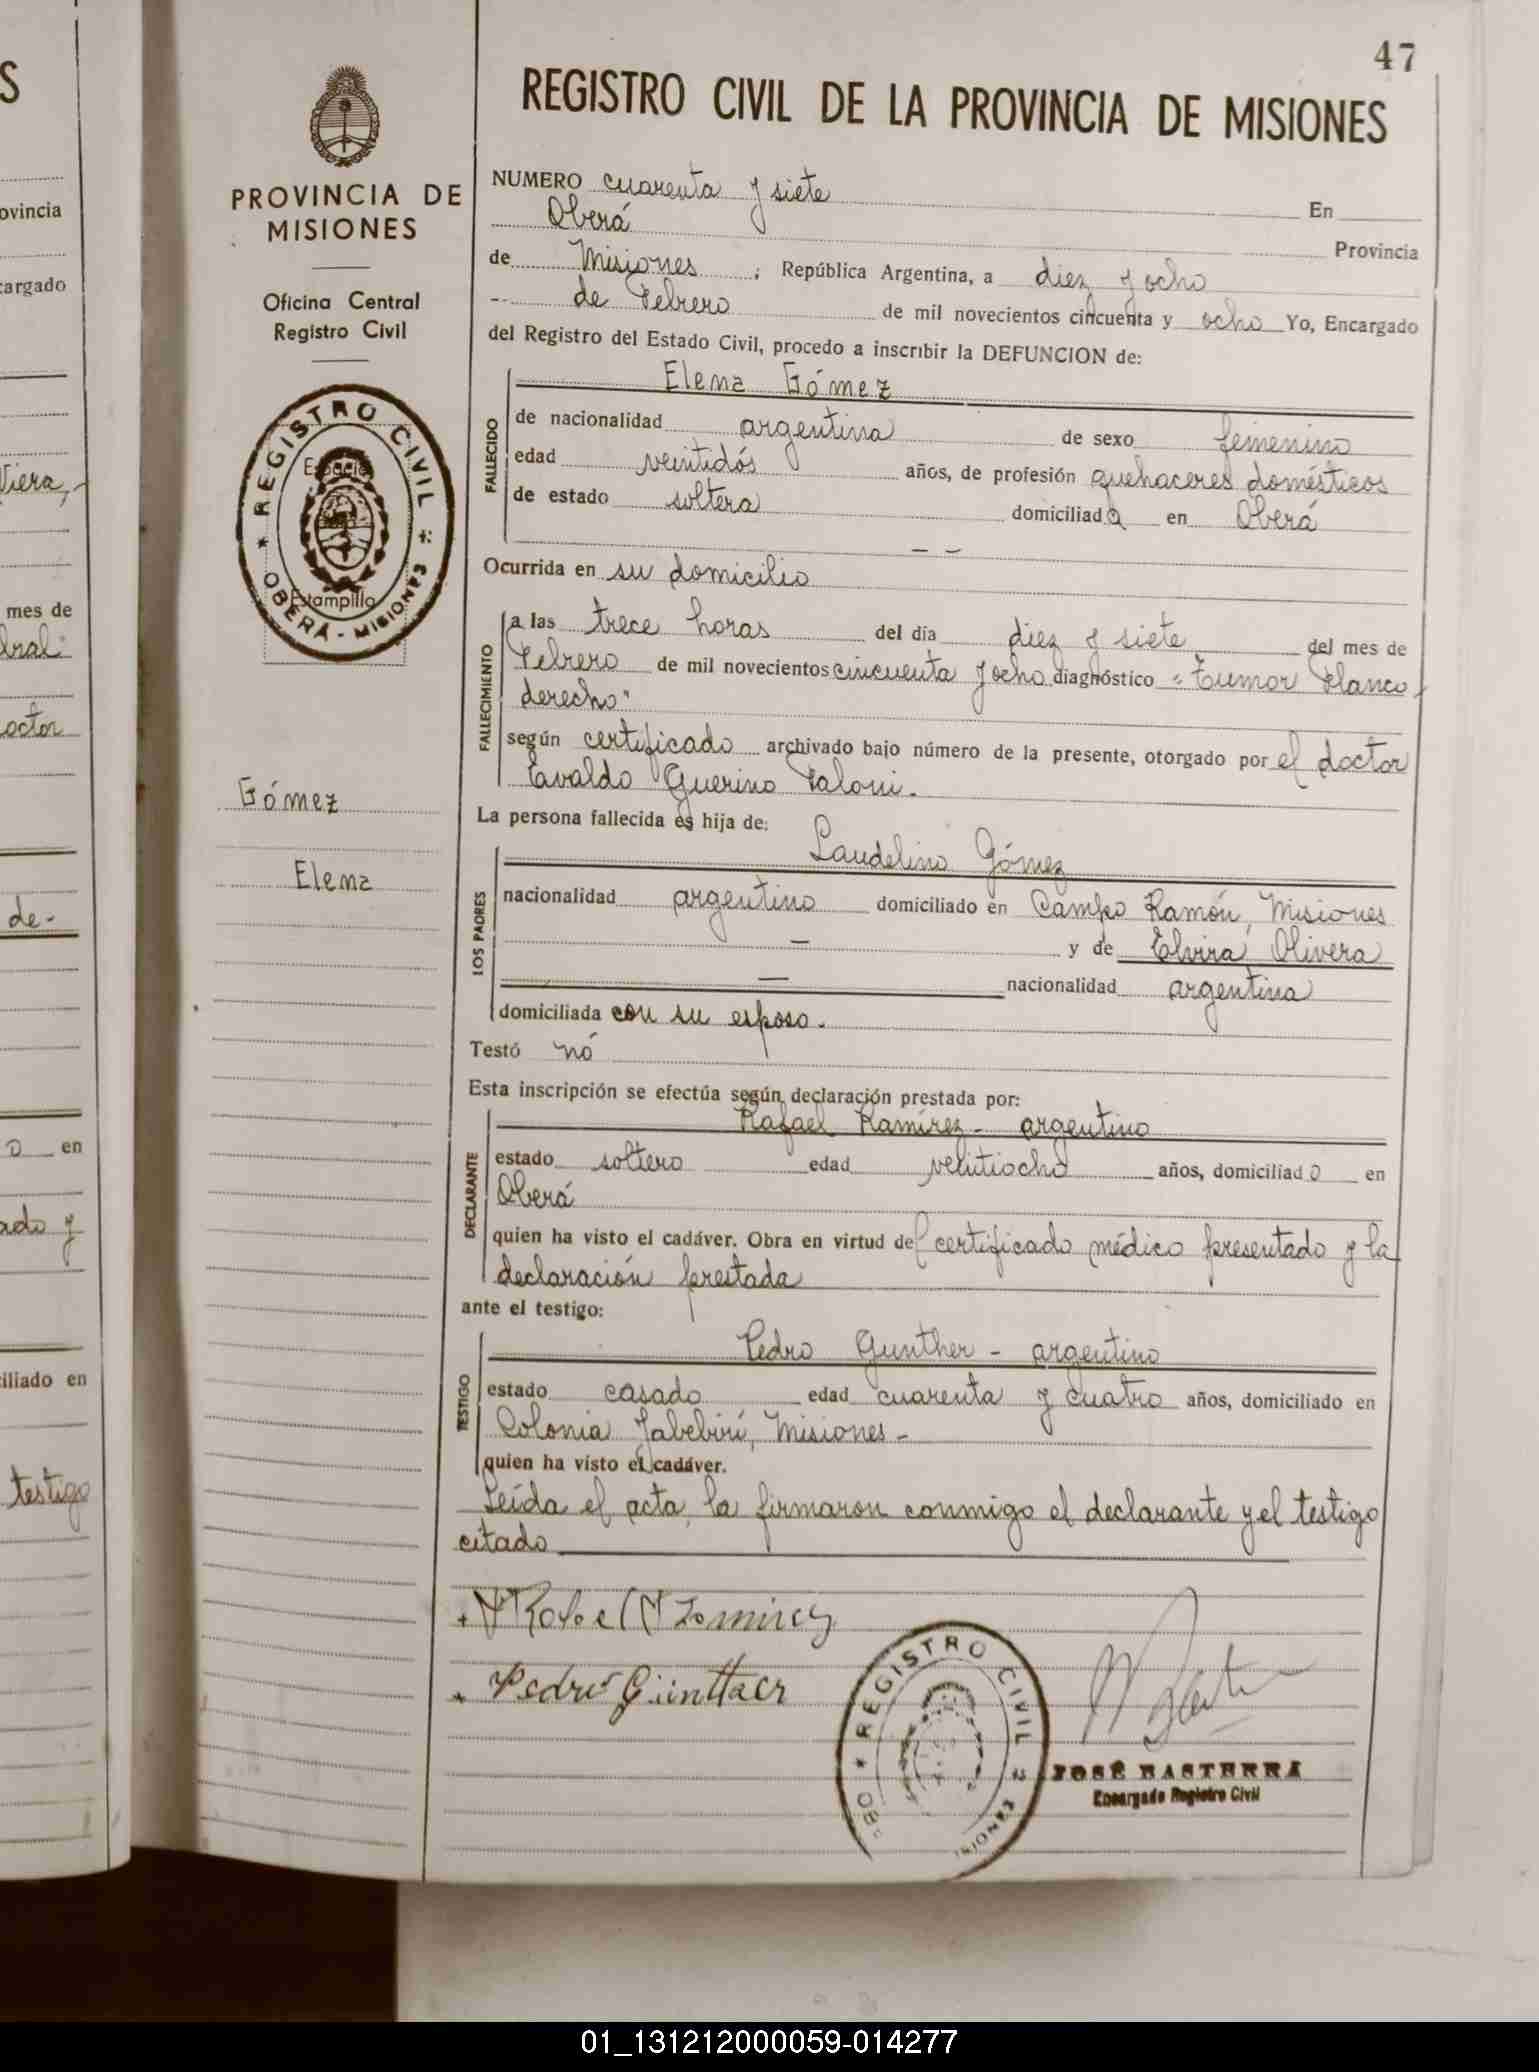 47
REGISTRO CIVIL DE LA PROVINCIA DE MISIONES
PROVINCIA DE
MISIONES
Oficina Central
Registro Civil
REGISTRO CIVIL
OBERÁ - MISIONES
Espacio
Estampilla
Gómez
Elena
NUMERO cuarenta y siete En
Oberá Provincia
de Misiones ; República Argentina, a diez y ocho
de Febrero de mil novecientos cincuenta y ocho Yo, Encargado
del Registro del Estado Civil, procedo a inscribir la DEFUNCION de:
FALLECIDO
Elena Gómez
de nacionalidad argentina de sexo femenino
edad veintidós años, de profesión quehaceres domésticos
de estado soltera domiciliada en Oberá
Ocurrida en su domicilio
FALLECIMIENTO
a las trece horas del dia diez y siete del mes de
Febrero de mil novecientos cincuenta y ocho diagnóstico "Tumor flanco
derecho"
según certificado archivado bajo número de la presente, otorgado por el doctor
Guerino
La persona fallecida es hija de:
LOS PADRES
Laudelino Gómez
nacionalidad argentino domiciliado en Campo Ramón, Misiones
— y de Elvira Olivera
— nacionalidad argentina
domiciliada con su esposo.
Testó nó
Esta inscripción se efectúa según declaración prestada por:
DECLARANTE
Rafael Ramírez - argentino
estado soltero edad veintiocho años, domiciliado en
Oberá
quien ha visto el cadáver. Obra en virtud del certificado médico presentado y la
declaración prestada
ante el testigo:
TESTIGO
Pedro Gunther - argentino
estado casado edad cuarenta y cuatro años, domiciliado en
Colonia Yabebirí, Misiones -
quien ha visto el cadáver.
Leída el acta, la firmaron conmigo el declarante y el testigo
citado
Pedro
REGISTRO CIVIL
JOSÉ BASTERRA
Encargado Registro Civil
S
ovincia
cargado
Viera,
mes de
octor
de-
o en
ado y
iliado en
testigo
01_131212000059-014277